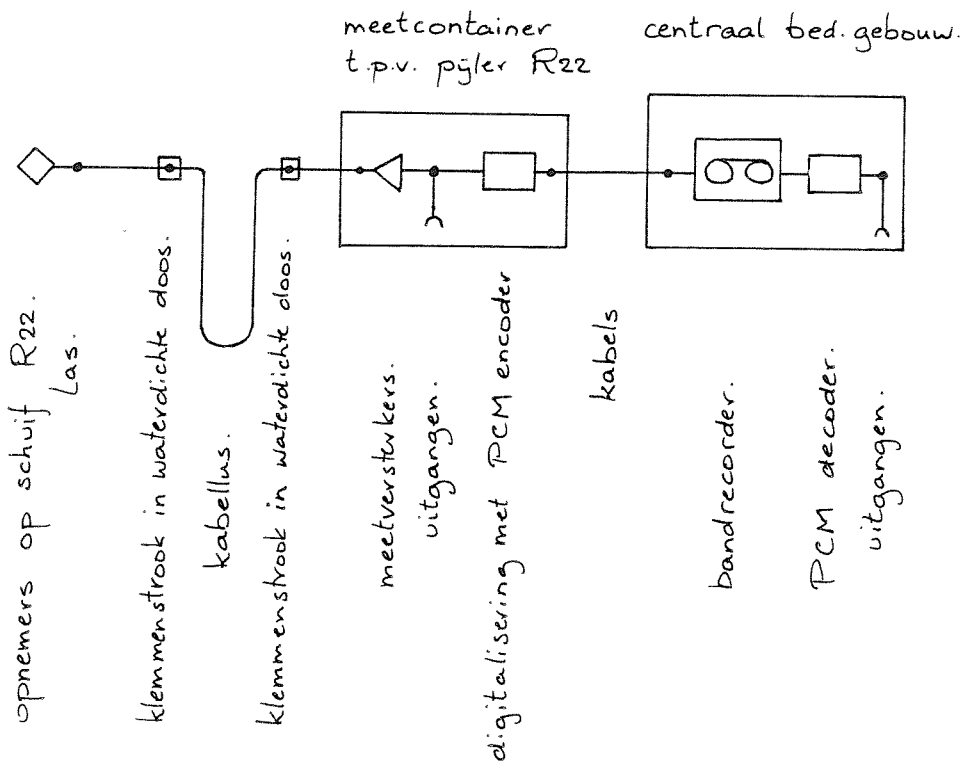 meetcontainer
t.p.v. pijler R22
centraal bed. gebouw.
opnemers op schuif R22.
Las.
klemmenstrook in waterdichte doos.
kabellus.
klemmenstrook in waterdichte doos.
meetversterkers.
uitgangen.
digitalisering met PCM encoder
kabels
bandrecorder.
PCM decoder.
uitgangen.